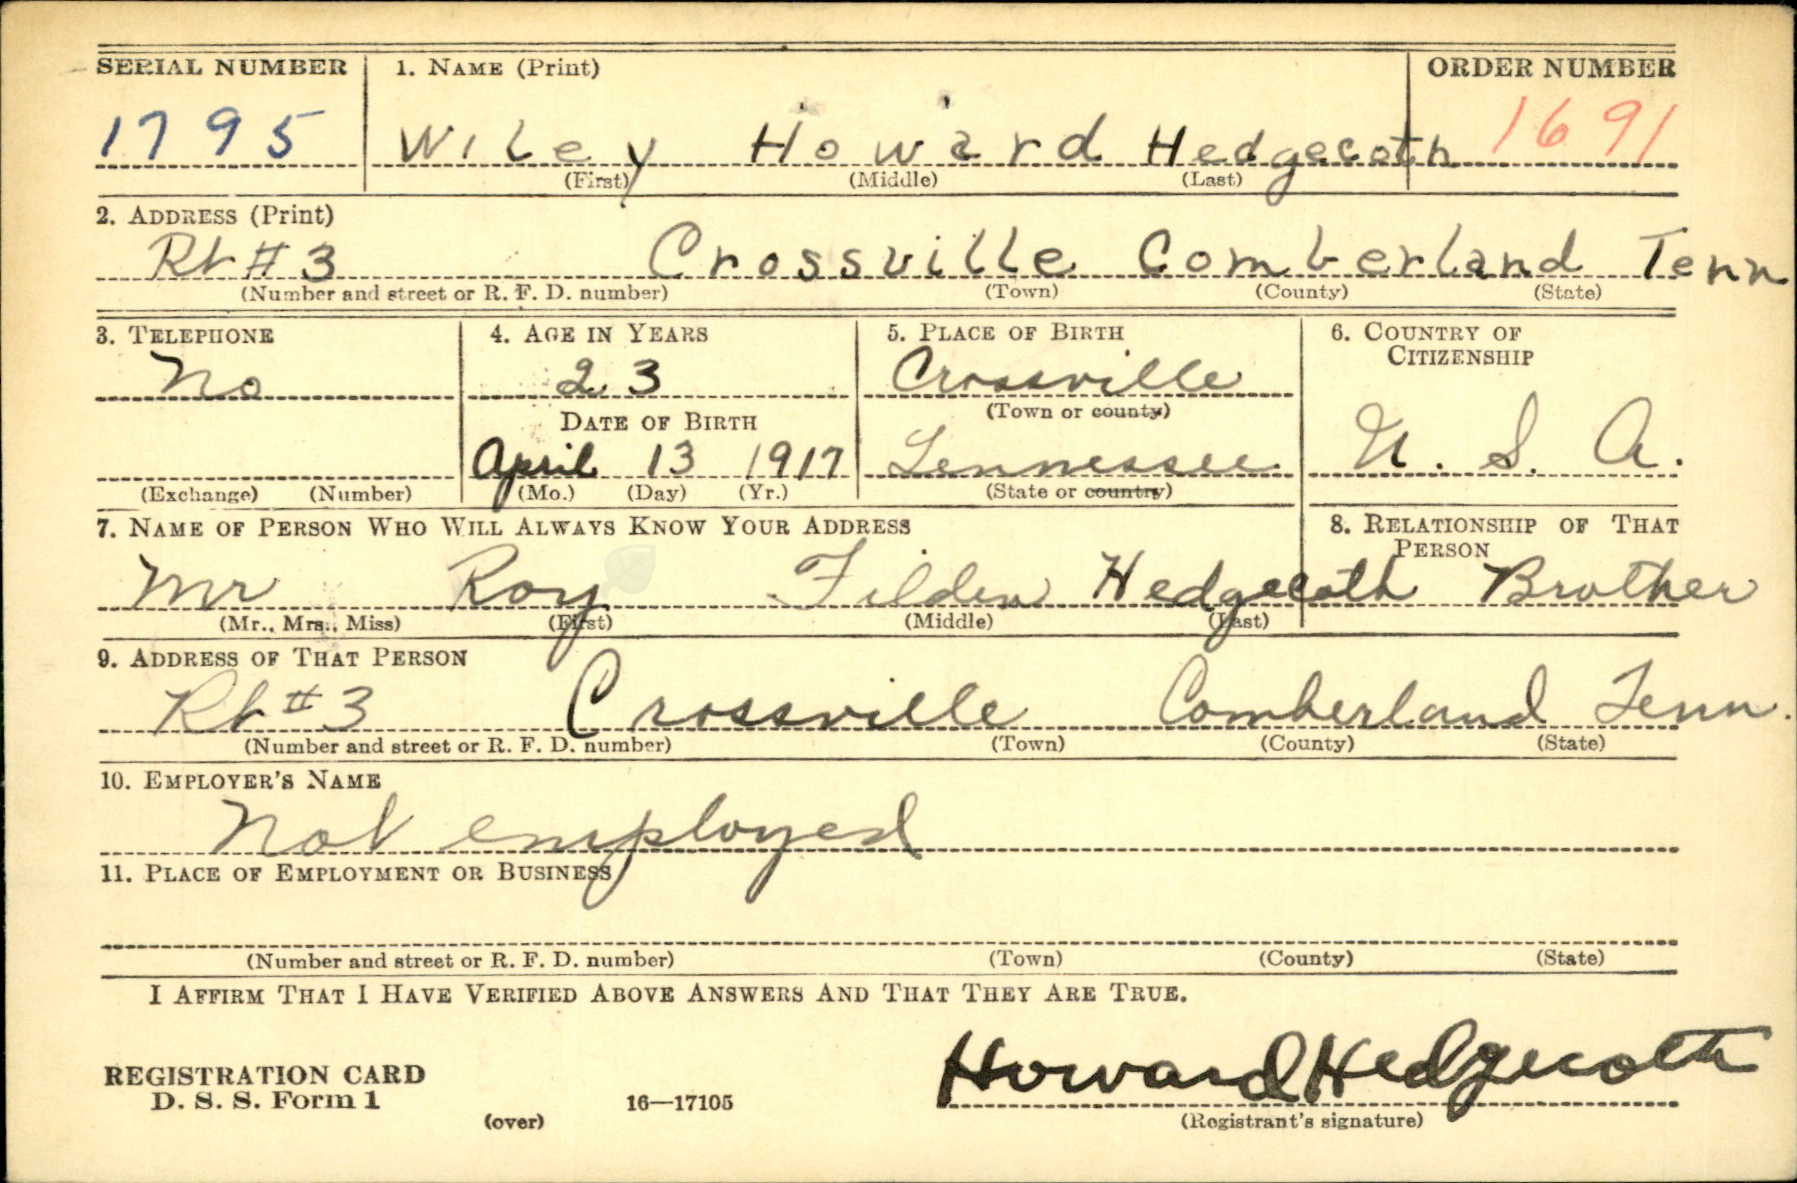 SERIAL NUMBER 1. NAME (Print) ORDER NUMBER
1795 Wiley Howard Hedgecoth 1691
(First) (Middle) (Last)
2. ADDRESS (Print)
Rt # 3 Crossville Comberland Tenn
(Number and street or R. F. D. number) (Town) (County) (State)
3. TELEPHONE 4. AGE IN YEARS 5. PLACE OF BIRTH 6. COUNTRY OF CITIZENSHIP
No 23 Crossville
(Town or county)
DATE OF BIRTH
April 13 1917 Tennessee U. S. A.
(Exchange) (Number) (Mo.) (Day) (Yr.) (State or country)
7. NAME OF PERSON WHO WILL ALWAYS KNOW YOUR ADDRESS 8. RELATIONSHIP OF THAT PERSON
Mr Roy Tilden Hedgecoth Brother
(Mr., Mrs., Miss) (First) (Middle) (Last)
9. ADDRESS OF THAT PERSON
Rt # 3 Crossville Comberland Tenn.
(Number and street or R. F. D. number) (Town) (County) (State)
10. EMPLOYER'S NAME
Not employed
11. PLACE OF EMPLOYMENT OR BUSINESS
(Number and street or R. F. D. number) (Town) (County) (State)
I AFFIRM THAT I HAVE VERIFIED ABOVE ANSWERS AND THAT THEY ARE TRUE.
Howard Hedgecoth
REGISTRATION CARD
D. S. S. Form 1
(over) 16—17105 (Registrant's signature)